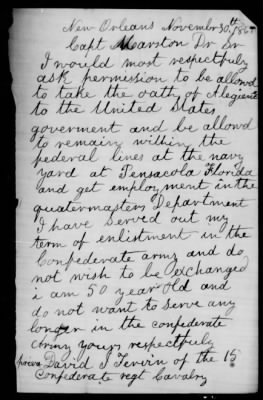 New Orleans November 30th 186
Capt Marston Dr Sr
I would most respectfuly
ask permission to be allowd
to take the oath of Alegience
to the United States
goverment and be allowd
to remain within the
federal lines at the navy
yard at Pensacola Florida
and get employment in the
quatermasters Department
I have served out my
term of enlistment in the
Confederate army and do
not wish to be exchanged
i am 50 year old and
do not want to serve any
longer in the confederate
Army yours respectfuly
David J of the 15
Confederate regt Cavalry